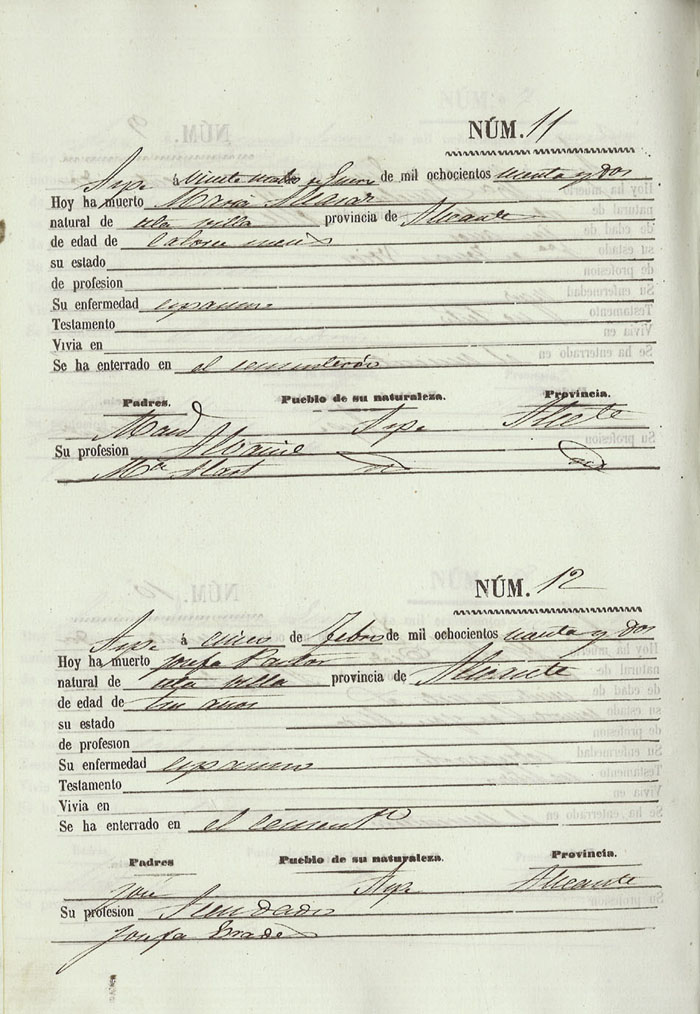 NÚM. 11
Aspe á Veinte de Enero de mil ochocientos y dos
Hoy ha muerto Maria
natural de esta villa provincia de Alicante
de edad de Catorce meses
su estado
de profesion
Su enfermedad espasmo
Testamento
Vivia en
Se ha enterrado en el cementerio
Padres. Pueblo de su naturaleza. Provincia.
Aspe
Su profesion
Mª
NÚM. 12
Aspe á cinco de Febro de mil ochocientos y dos
Hoy ha muerto Josefa Pastor
natural de esta villa provincia de Alicante
de edad de tres años
su estado
de profesion
Su enfermedad espasmo
Testamento
Vivia en
Se ha enterrado en el cementº
Padres Pueblo de su naturaleza. Provincia.
José Aspe Alicante
Su profesion Hacendado
Josefa